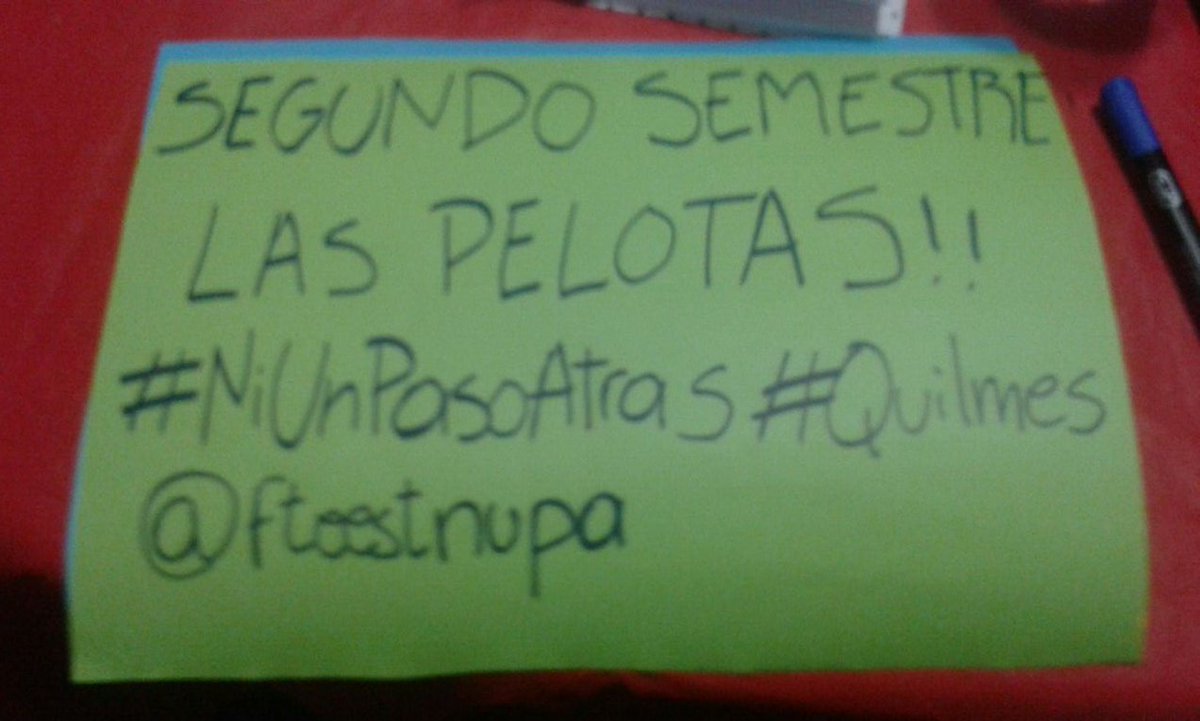 SEGUNDO SEMESTRE
LAS PELOTAS!!
#NiUnPasoAtras #Quilmes
@fteestnupa